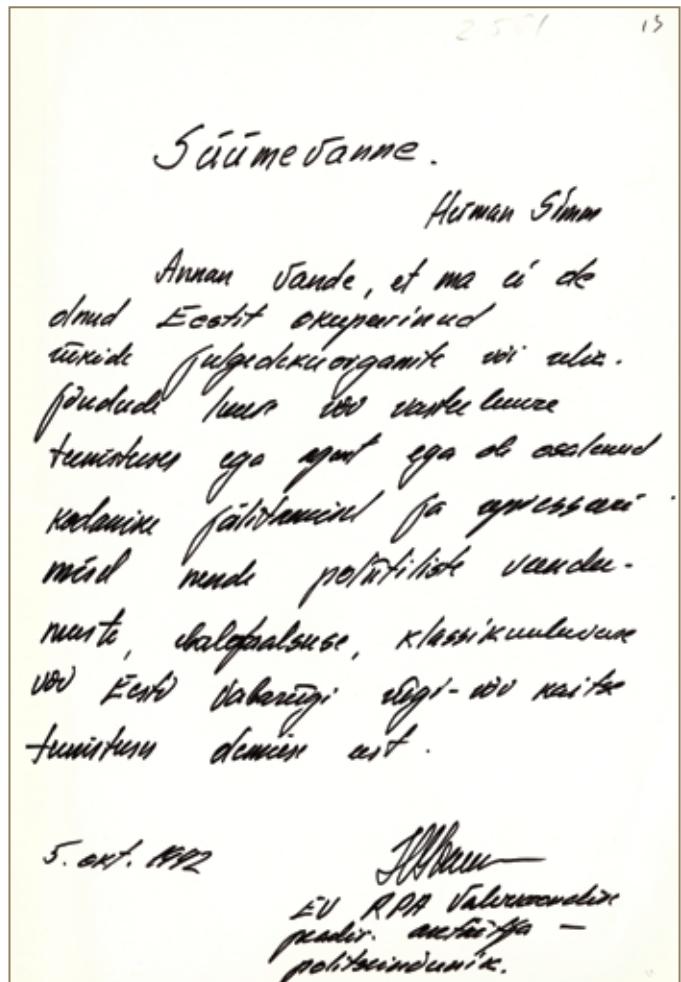 13
Süümevanne.
Herman Simm
Annan vande, et ma ei ole
olnud Eestit okupeerinud
riikide julgeolekuorganite või relv.
jõudude luure või vastuluure
teenistuses ega agent ega ole osalenud
kodanike jälitamisel ja represseeri
misel nende poliitiliste veendu-
muste, ebalojaalsuse, klassikuuluvuse
või Eesti Vabariigi riigi- või kaitse
teenistuses olemise eest.
5. okt. 1992
EV RPA
politseinõunik.